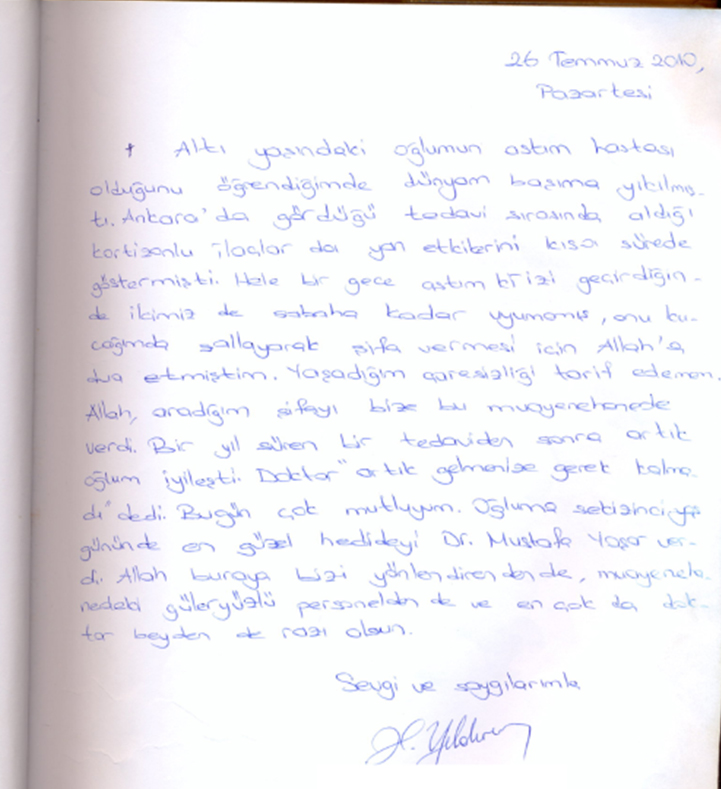 26 Temmuz 2010,
Pazartesi
Altı yaşındaki oğlumun astım hastası
olduğunu öğrendiğimde dünyam başıma yıkılmış-
tı. Ankara'da gördüğü tedavi sırasında aldığı
kortizonlu ilaçlar da yan etkilerini kısa sürede
göstermişti. Hele bir gece astım krizi geçirdiğin-
de ikimiz de sabaha kadar uyumamış, onu ku-
cağımda sallayarak şifa vermesi için Allah'a
dua etmiştim. Yaşadığım çaresizliği tarif edemem.
Allah, aradığım şifayı bize bu muayenehanede
verdi. Bir yıl süren bir tedaviden sonra artık
oğlum iyileşti. Doktor "artık gelmenize gerek kalma-
dı" dedi. Bugün çok mutluyum. Oğluma sekizinci yaş
gününde en güzel hediyeyi Dr. Mustafa Yaşar ver-
di. Allah buraya bizi yönlendirenden de, muayeneha-
nedeki güleryüzlü personelden de ve en çok da dok-
tor beyden de razı olsun.
Sevgi ve saygılarımla
H. Yıldırım